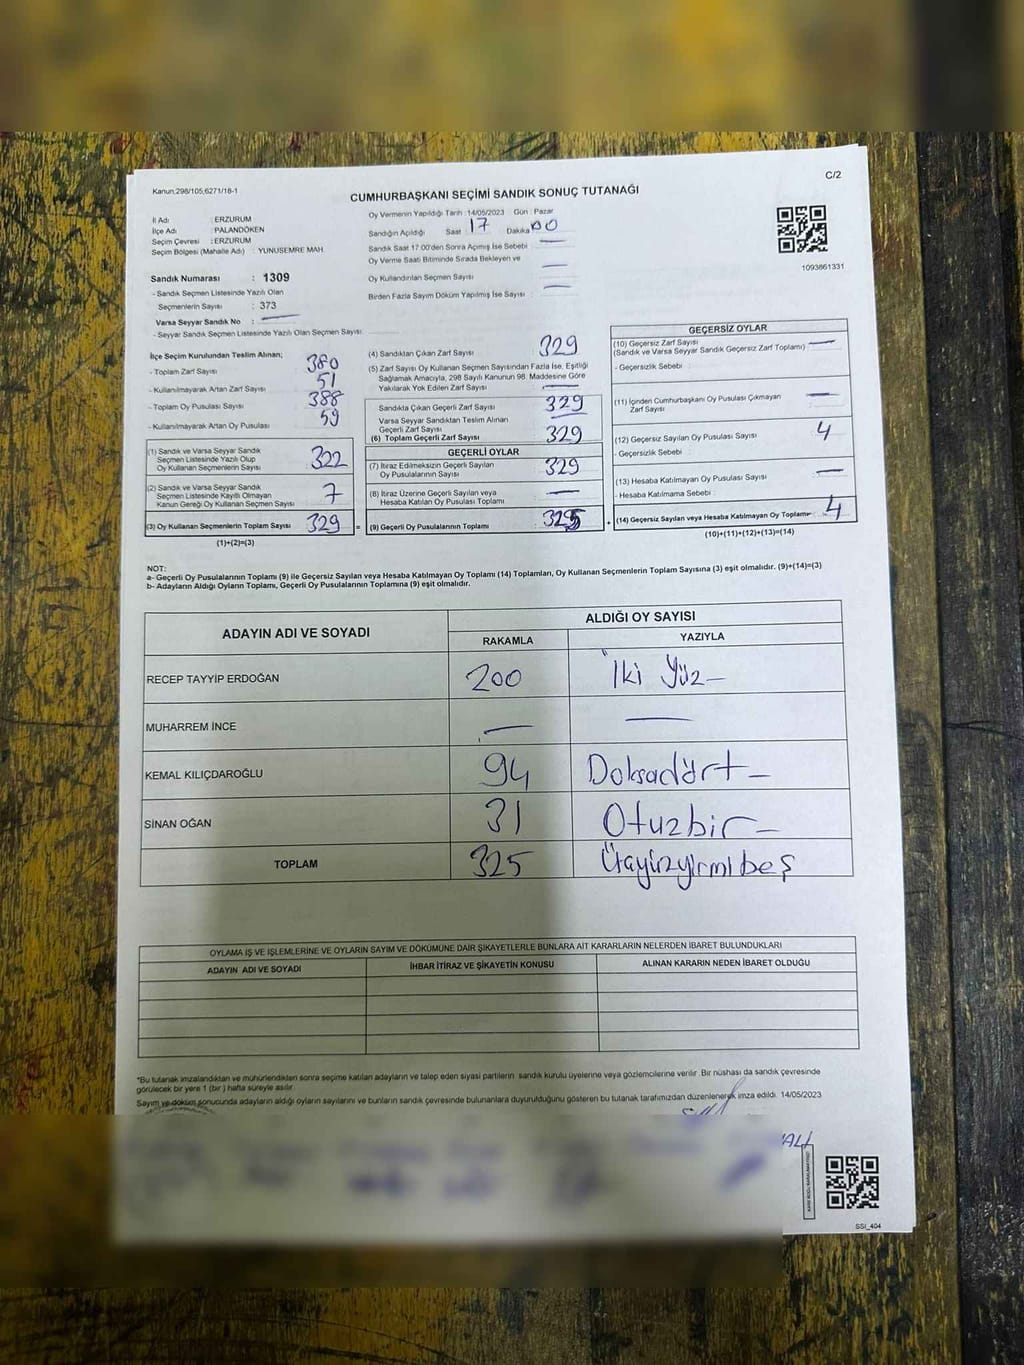 Kanun,298/105,6271/18-1
C/2
CUMHURBAŞKANI SEÇİMİ SANDIK SONUÇ TUTANAĞI
İl Adı : ERZURUM
İlçe Adı : PALANDÖKEN
Seçim Çevresi : ERZURUM
Seçim Bölgesi (Mahalle Adı) : YUNUSEMRE MAH.
Sandık Numarası : 1309
- Sandık Seçmen Listesinde Yazılı Olan
Seçmenlerin Sayısı : 373
Varsa Seyyar Sandık No : —
- Seyyar Sandık Seçmen Listesinde Yazılı Olan Seçmen Sayısı:
Oy Vermenin Yapıldığı Tarih :14/05/2023 Gün : Pazar
Sandığın Açıldığı Saat 17 Dakika 00
Sandık Saat 17.00'den Sonra Açımış İse Sebebi : —
Oy Verme Saati Bitiminde Sırada Bekleyen ve
Oy Kullandırılan Seçmen Sayısı : —
Birden Fazla Sayım Döküm Yapılmış İse Sayısı : —
1093861331
İlçe Seçim Kurulundan Teslim Alınan;
- Toplam Zarf Sayısı : 380
- Kullanılmayarak Artan Zarf Sayısı : 51
- Toplam Oy Pusulası Sayısı : 388
- Kullanılmayarak Artan Oy Pusulası : 59
(1) Sandık ve Varsa Seyyar Sandık
Seçmen Listesinde Yazılı Olup
Oy Kullanan Seçmenlerin Sayısı 322
(2) Sandık ve Varsa Seyyar Sandık
Seçmen Listesinde Kayıtlı Olmayan
Kanun Gereği Oy Kullanan Seçmen Sayısı 7
(3) Oy Kullanan Seçmenlerin Toplam Sayısı 329
(1)+(2)=(3)
(4) Sandıktan Çıkan Zarf Sayısı : 329
(5) Zarf Sayısı Oy Kullanan Seçmen Sayısından Fazla İse, Eşitliği
Sağlamak Amacıyla, 298 Sayılı Kanunun 98. Maddesine Göre
Yakılarak Yok Edilen Zarf Sayısı : —
Sandıkta Çıkan Geçerli Zarf Sayısı : 329
Varsa Seyyar Sandıktan Teslim Alınan
Geçerli Zarf Sayısı : —
(6) Toplam Geçerli Zarf Sayısı : 329
GEÇERLİ OYLAR
(7) İtiraz Edilmeksizin Geçerli Sayılan
Oy Pusulalarının Sayısı : 329
(8) İtiraz Üzerine Geçerli Sayılan veya
Hesaba Katılan Oy Pusulası Toplamı : —
= (9) Geçerli Oy Pusulalarının Toplamı : 325
GEÇERSİZ OYLAR
(10) Geçersiz Zarf Sayısı : —
(Sandık ve Varsa Seyyar Sandık Geçersiz Zarf Toplamı)
- Geçersizlik Sebebi :
(11) İçinden Cumhurbaşkanı Oy Pusulası Çıkmayan
Zarf Sayısı : —
(12) Geçersiz Sayılan Oy Pusulası Sayısı : 4
- Geçersizlik Sebebi :
(13) Hesaba Katılmayan Oy Pusulası Sayısı : —
- Hesaba Katılmama Sebebi :
+ (14) Geçersiz Sayılan veya Hesaba Katılmayan Oy Toplamı 4
(10)+(11)+(12)+(13)=(14)
NOT:
a- Geçerli Oy Pusulalarının Toplamı (9) ile Geçersiz Sayılan veya Hesaba Katılmayan Oy Toplamı (14) Toplamları, Oy Kullanan Seçmenlerin Toplam Sayısına (3) eşit olmalıdır. (9)+(14)=(3)
b- Adayların Aldığı Oyların Toplamı, Geçerli Oy Pusulalarının Toplamına (9) eşit olmalıdır.
ADAYIN ADI VE SOYADI
ALDIĞI OY SAYISI
RAKAMLA YAZIYLA
RECEP TAYYİP ERDOĞAN 200 İki Yüz —
MUHARREM İNCE — —
KEMAL KILIÇDAROĞLU 94 Doksadört —
SİNAN OĞAN 31 Otuzbir —
TOPLAM 325 Üçyüzyirmibeş
OYLAMA İŞ VE İŞLEMLERİNE VE OYLARIN SAYIM VE DÖKÜMÜNE DAİR ŞİKAYETLERLE BUNLARA AİT KARARLARIN NELERDEN İBARET BULUNDUKLARI
ADAYIN ADI VE SOYADI İHBAR İTİRAZ VE ŞİKAYETİN KONUSU ALINAN KARARIN NEDEN İBARET OLDUĞU
*Bu tutanak imzalandıktan ve mühürlendikten sonra seçime katılan adayların ve talep eden siyasi partilerin sandık kurulu üyelerine veya gözlemcilerine verilir. Bir nüshası da sandık çevresinde
görülecek bir yere 1 (bir ) hafta süreyle asılır.
Sayım ve döküm sonucunda adayların aldığı oyların sayılarını ve bunların sandık çevresinde bulunanlara duyurulduğunu gösteren bu tutanak tarafımızdan düzenlenerek imza edildi. 14/05/2023
SSI_404